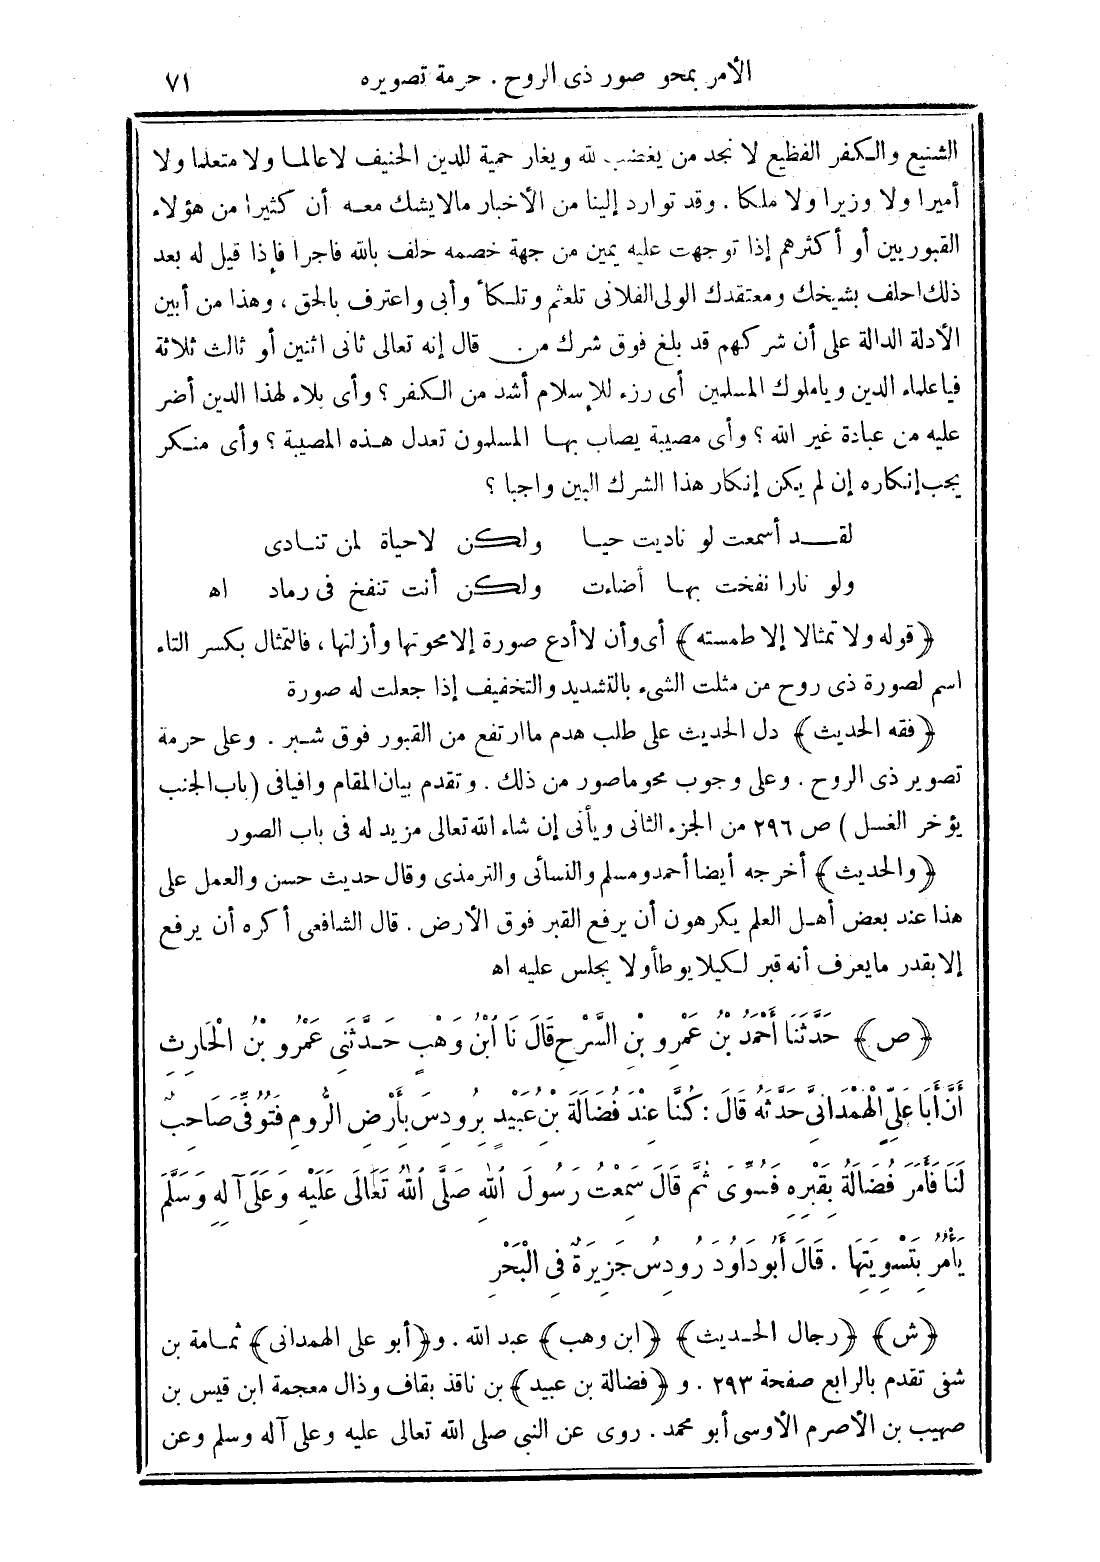 الأمر بمحو صور ذى الروح . حرمة تصويره ٧١
الشنيع والكفر الفظيع لا نجد من يغضب لله ويغار حمية للدين الحنيف لا عالما ولا متعلما ولا
أميرا ولا وزيرا ولا ملكا . وقد توارد إلينا من الأخبار مالايشك معه أن كثيرا من هؤلاء
القبوريين أو أكثرهم إذا توجهت عليه يمين من جهة خصمه حلف بالله فاجرا فإذا قيل له بعد
ذلك احلف بشيخك ومعتقدك الولى الفلانى تلعثم وتلكأ وأبى واعترف بالحق ، وهذا من أبين
الأدلة الدالة على أن شركهم قد بلغ فوق شرك من قال إنه تعالى ثانى اثنين أو ثالث ثلاثة
فياعلماء الدين وياملوك المسلمين أى رزء للإسلام أشد من الكفر ؟ وأى بلاء لهذا الدين أضر
عليه من عبادة غير الله ؟ وأى مصيبة يصاب بها المسلمون تعدل هذه المصيبة ؟ وأى منكر
يجب إنكاره إن لم يكن إنكار هذا الشرك البين واجبا ؟
لقد أسمعت لو ناديت حيا ولكن لاحياة لمن تنادى
ولو نارا نفخت بها أضاءت ولكن أنت تنفخ فى رماد اه
﴿قوله ولا تمثالا إلا طمسته﴾ أى وأن لا أدع صورة إلا محوتها وأزلتها ، فالتمثال بكسر التاء
اسم لصورة ذى روح من مثلت الشىء بالتشديد والتخفيف إذا جعلت له صورة
﴿فقه الحديث﴾ دل الحديث على طلب هدم ما ارتفع من القبور فوق شبر . وعلى حرمة
تصوير ذى الروح . وعلى وجوب محو ماصور من ذلك . وتقدم بيان المقام وافيا فى (باب الجنب
يؤخر الغسل) ص ٢٩٦ من الجزء الثانى ويأتى إن شاء الله تعالى مزيد له فى باب الصور
﴿والحديث﴾ أخرجه أيضا أحمد ومسلم والنسائى والترمذى وقال حديث حسن والعمل على
هذا عند بعض أهل العلم يكرهون أن يرفع القبر فوق الأرض . قال الشافعى أكره أن يرفع
إلا بقدر مايعرف أنه قبر لكيلا يوطأ ولا يجلس عليه اه
﴿ص﴾ حَدَّثَنَا أَحْمَدُ بْنُ عَمْرِو بْنِ السَّرْحِ قَالَ نَا ابْنُ وَهْبٍ حَدَّثَنِى عَمْرُو بْنُ الْحَارِثِ
أَنَّ أَبَا عَلِىٍّ الْهَمْدَانِىَّ حَدَّثَهُ قَالَ : كُنَّا عِنْدَ فَضَالَةَ بْنِ عُبَيْدٍ بِرُودِسَ بِأَرْضِ الرُّومِ فَتُوُفِّىَ صَاحِبٌ
لَنَا فَأَمَرَ فَضَالَةُ بِقَبْرِهِ فَسُوِّىَ ثُمَّ قَالَ سَمِعْتُ رَسُولَ اللهِ صَلَّى اللهُ تَعَالَى عَلَيْهِ وَعَلَى آلِهِ وَسَلَّمَ
يَأْمُرُ بِتَسْوِيَتِهَا . قَالَ أَبُو دَاوُدَ رُودِسُ جَزِيرَةٌ فِى الْبَحْرِ
﴿ش﴾ ﴿رجال الحديث﴾ ﴿ابن وهب﴾ عبد الله . و﴿أبو على الهمدانى﴾ ثمامة بن
شفى تقدم بالرابع صفحة ٢٩٣ . و﴿فضالة بن عبيد﴾ بن ناقذ بقاف وذال معجمة ابن قيس بن
صهيب بن الأصرم الأوسى أبو محمد . روى عن النبى صلى الله تعالى عليه وعلى آله وسلم وعن